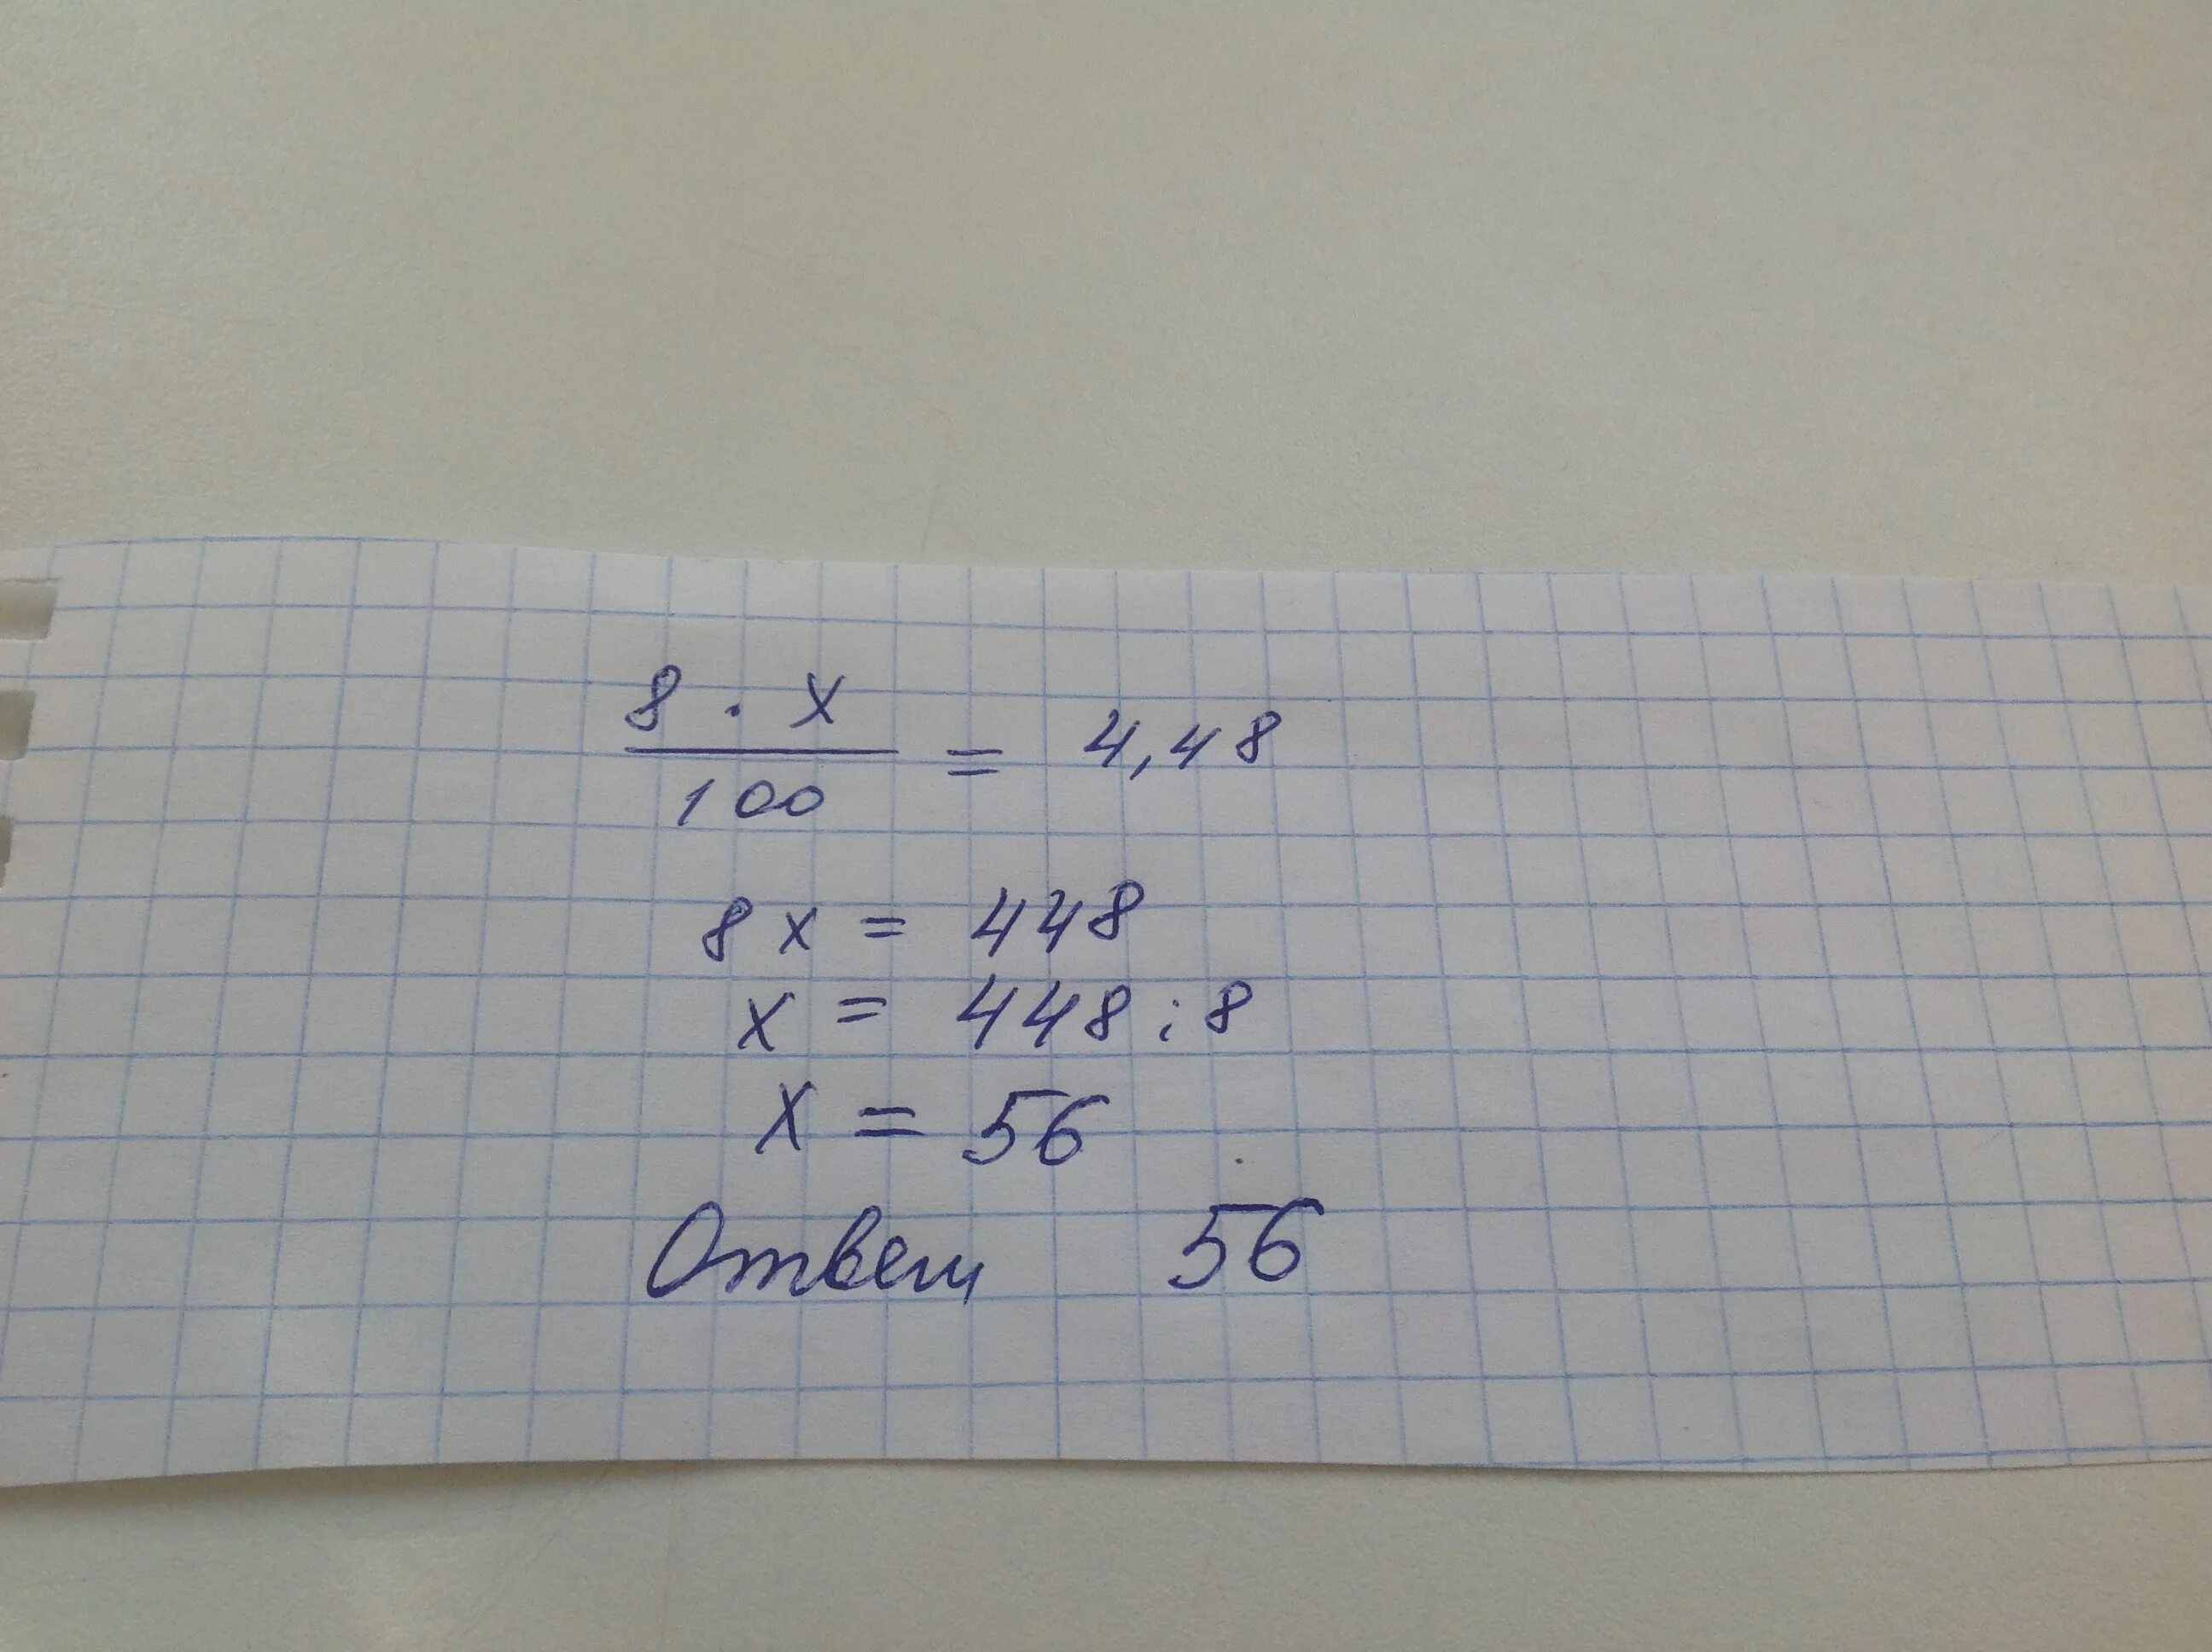 8 · x
100 = 4,48
8x = 448
x = 448 : 8
x = 56
Ответ 56